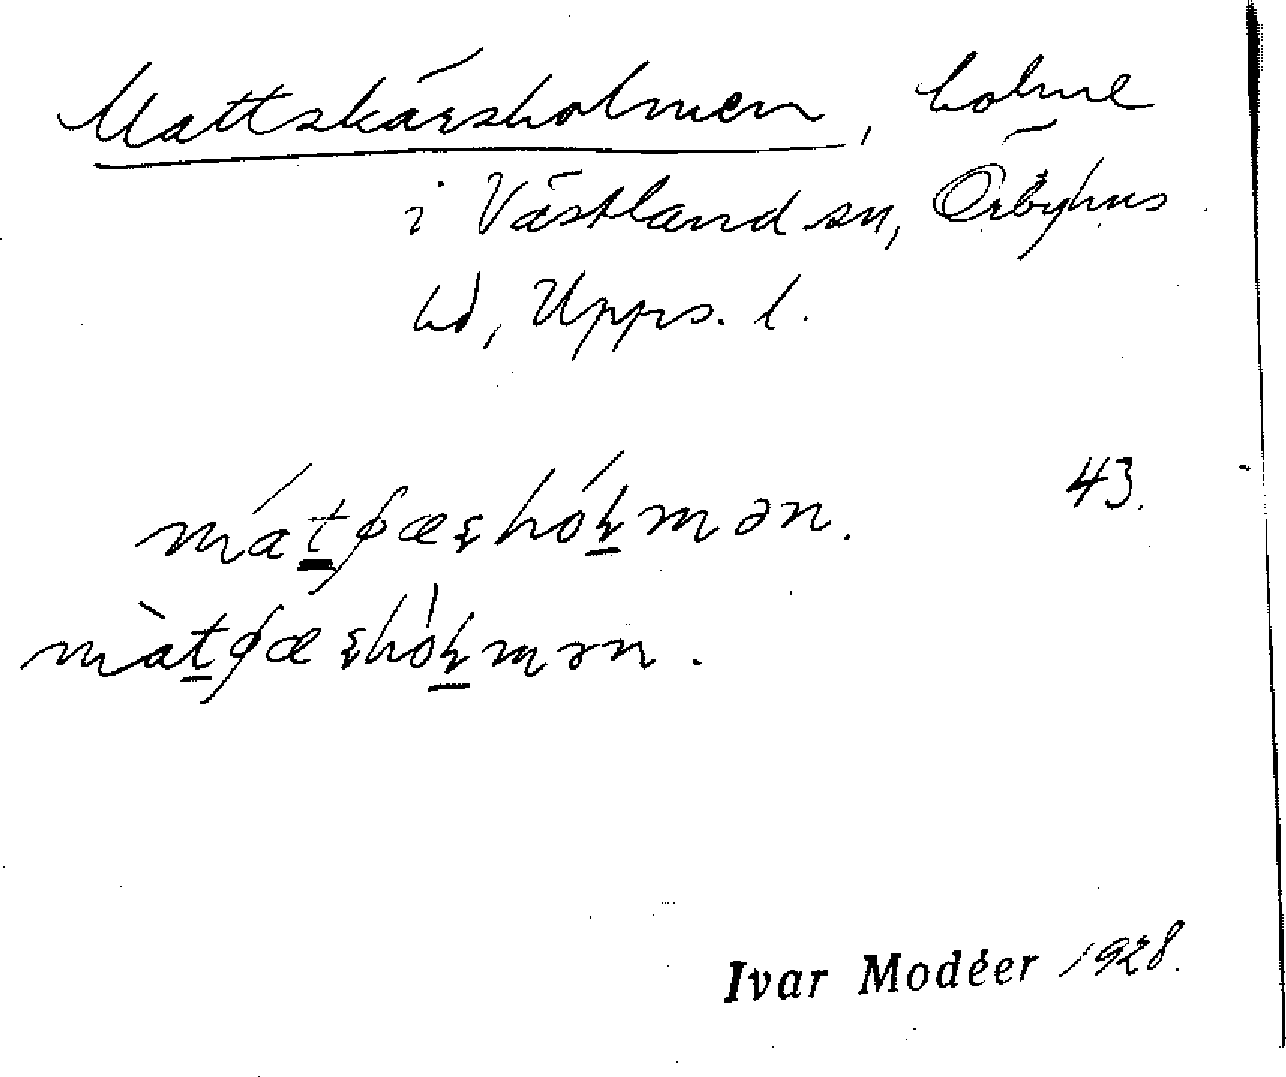 Mattskärsholmen, holme
i Västland sn, Örbyhus
hd, Upps. l.
43.
Ivar Modéer 1928.